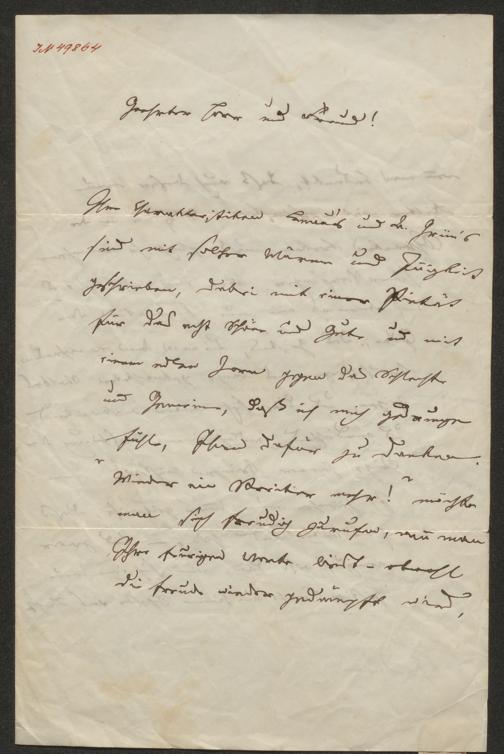 IN 49864
Geehrter Herr und Freund!
Ihre Charakteristiken, Lenau's und A. Grün's
sind mit solcher Wärme und Innigkeit
geschrieben, dabei mit einer Pietät
für das echt Schöne und Gute, und mit
einem edlen Zorn gegen das Schlechte
und Gemeine, daß ich mich gedrungen
fühle, Ihnen dafür zu danken.
"Wieder ein Streiter mehr!" möchte
man sich freudig zurufen, wenn man
Ihre feurigen Worte liest – obwohl
die Freude wieder gedämpft wird,